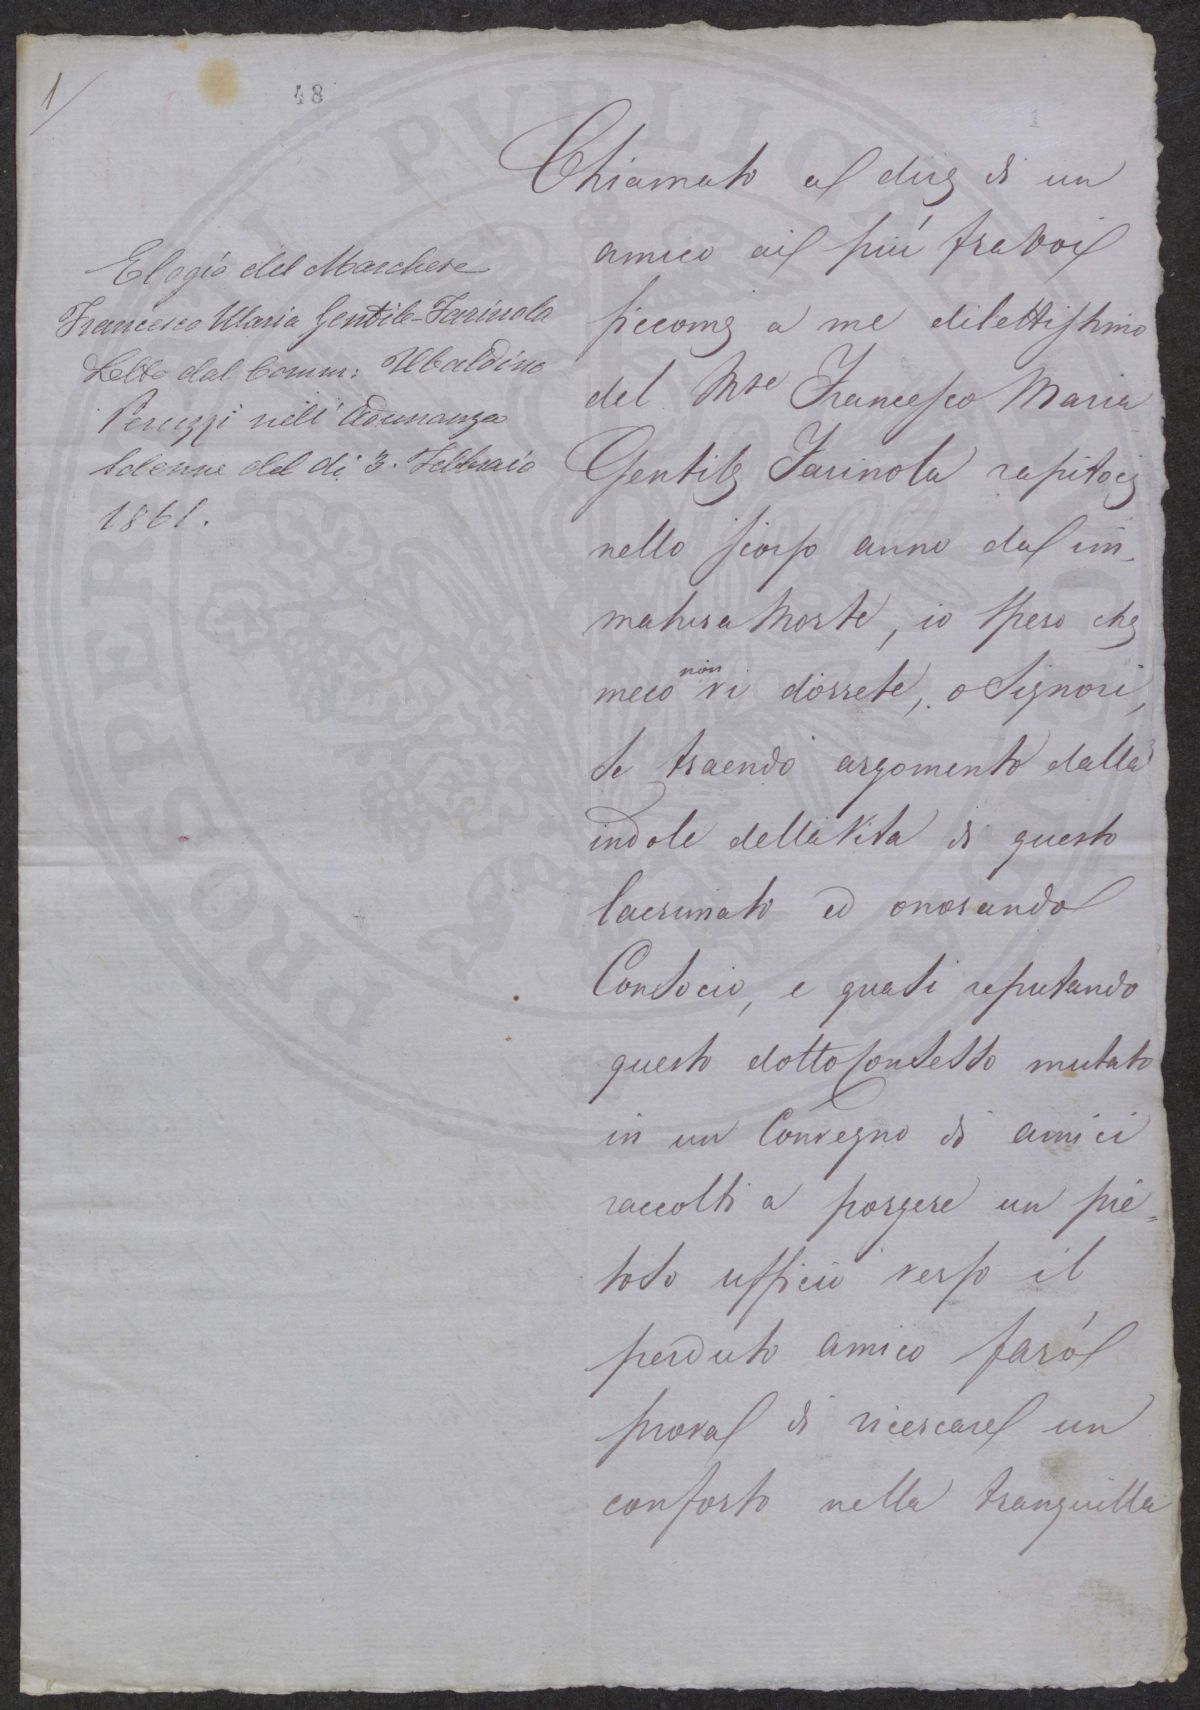 1
48
1
Elogio del Marchese
Francesco Maria Gentile-Farinola
Letto dal Comm: Ubaldino
Peruzzi nell'Adunanza
solenne del dì 3. Febbraio
1861.
Chiamato a dire di un
amico ai più fra Voi
siccome a me dilettissimo
del Mse Francesco Maria
Gentile Farinola rapitoci
nello scorso anno da im-
matura Morte, io spero che
meco non vi dorrete, o Signori,
se traendo argomento dalla
indole della Vita di questo
lacrimato ed onorando
Consocio, e quasi reputando
questo dotto Consesso mutato
in un Convegno di amici
raccolti a porgere un pie=
toso ufficio verso il
perduto amico farò
prova di ricercare un
conforto nella tranquilla
PROSPERITATI PUBLICAE AUGENDAE